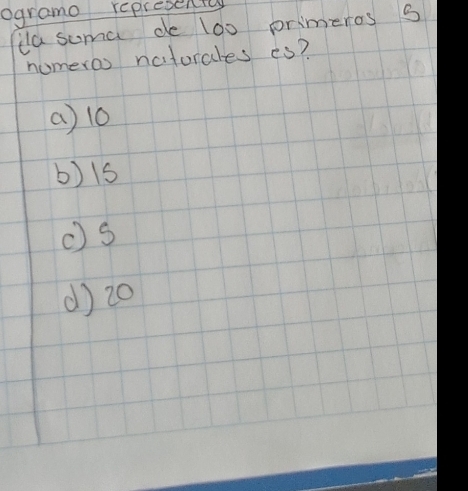 ogramo representa
la suma de los primeros 5
numeros naturales es?
a) 10
b) 15
c) 5
d) 20